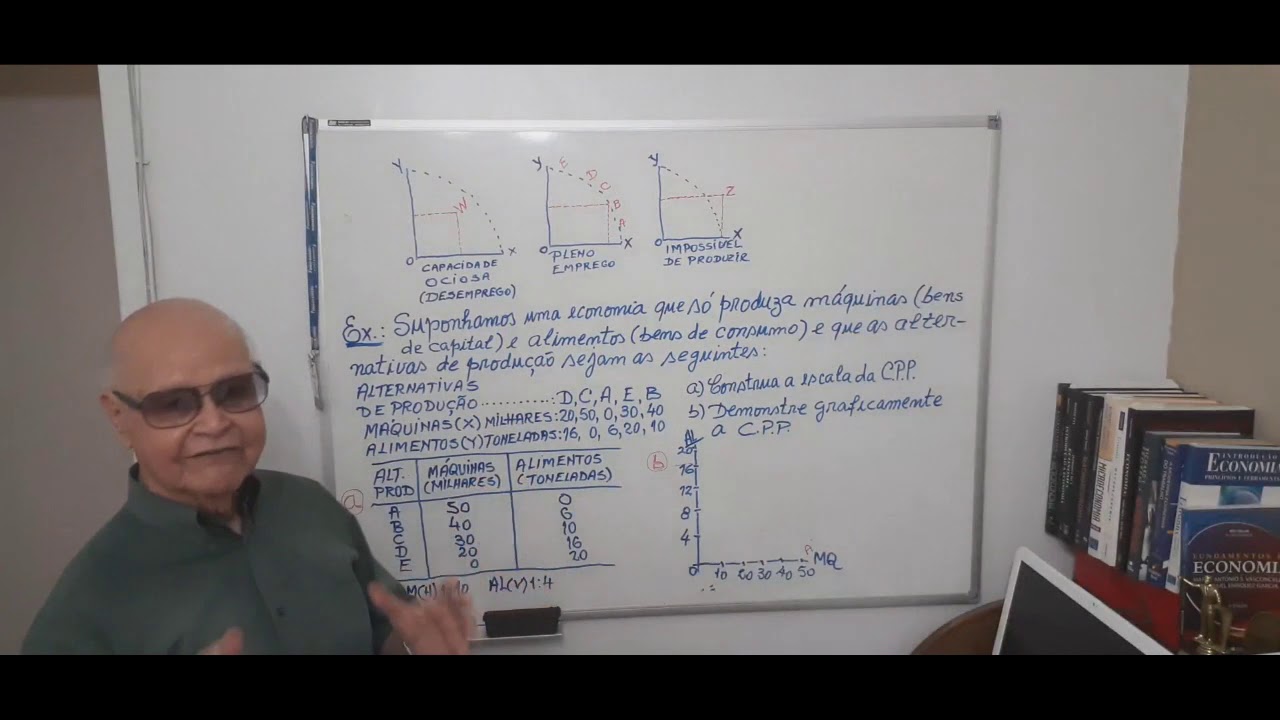 Y Y E D C Y
W B A Z
0 X 0 X 0 X
CAPACIDADE
OCIOSA
(DESEMPREGO)
PLENO
EMPREGO
IMPOSSÍVEL
DE PRODUZIR
Ex.: Suponhamos uma economia que só produza máquinas (bens
de capital) e alimentos (bens de consumo) e que as alter-
nativas de produção sejam as seguintes:
ALTERNATIVAS
DE PRODUÇÃO ..........: D, C, A, E, B
MÁQUINAS (X) MILHARES: 20, 50, 0, 30, 40
ALIMENTOS (Y) TONELADAS: 16, 0, 6, 20, 10
a) Construa a escala da C.P.P.
b) Demonstre graficamente
a C.P.P.
a
ALT. PROD MÁQUINAS (MILHARES) ALIMENTOS (TONELADAS)
A 50 0
B 40 6
C 30 10
D 20 16
E 0 20
M(H) 10 AL(V) 1:4
b
AL
20
16
12
8
4
0 10 20 30 40 50 MQ
INTRODUÇÃO
ECONOMIA
PRINCÍPIOS E FERRAMENTAS
FUNDAMENTOS
ECONOMIA